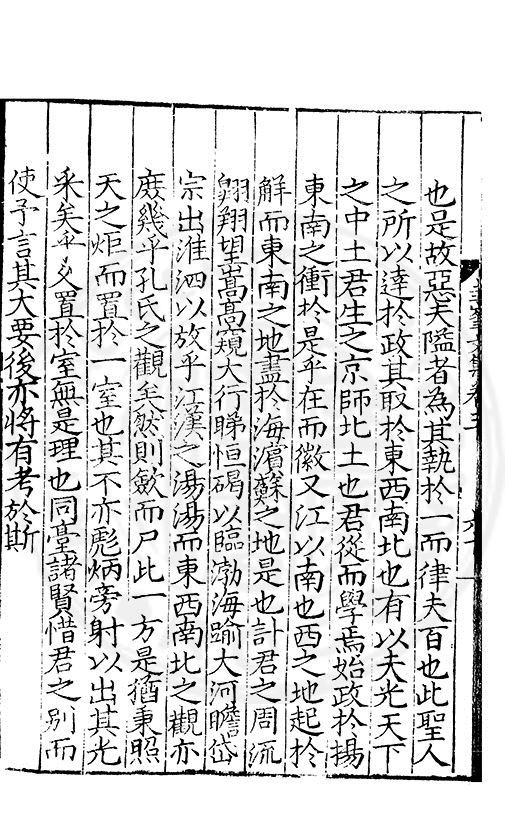 也是故惡夫隘者為其執於一而律夫百也此聖人
之所以達於政其取於東西南北也有以夫光天下
之中土君生之京師北土也君從而學焉始政於揚
東南之衝於是乎在而徽又江以南也西之地起於
觧而東南之地盡於海濵蘇之地是也計君之周流
翱翔望嵩高窺大行睇恒碣以臨渤海踰大河瞻岱
宗出淮泗以放乎江漢之湯湯而東西南北之觀亦
庻幾乎孔氏之觀矣然則歛而尸此一方是猶秉照
天之炬而置於一室也其不亦彪炳旁射以出其光
采矣乎文置於室無是理也同臺諸賢惜君之别而
使予言其大要後亦將有考於斯